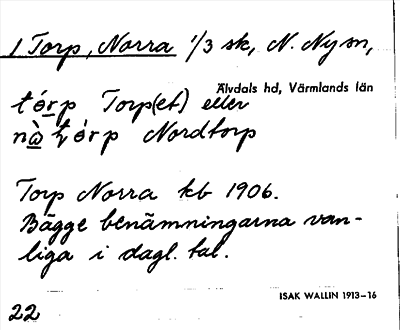 1 Torp, Norra 1/3 sk, N. Ny sn,
Älvdals hd, Värmlands län
tórp Torp(et) eller
nòţórp Nordtorp
Torp Norra kb 1906.
Bägge benämningarna van-
liga i dagl. tal.
ISAK WALLIN 1913–16
22